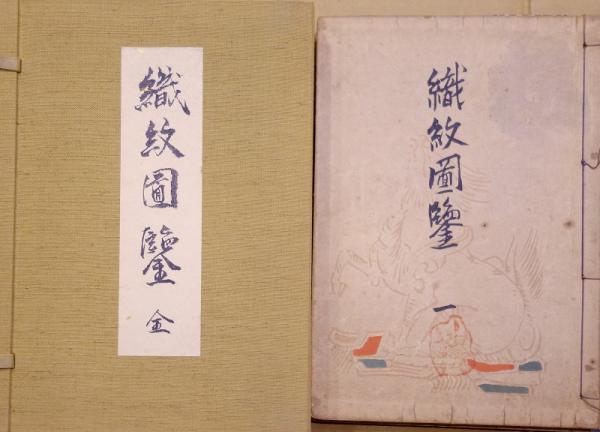 織紋圖鑒
全
織紋圖鑒
一